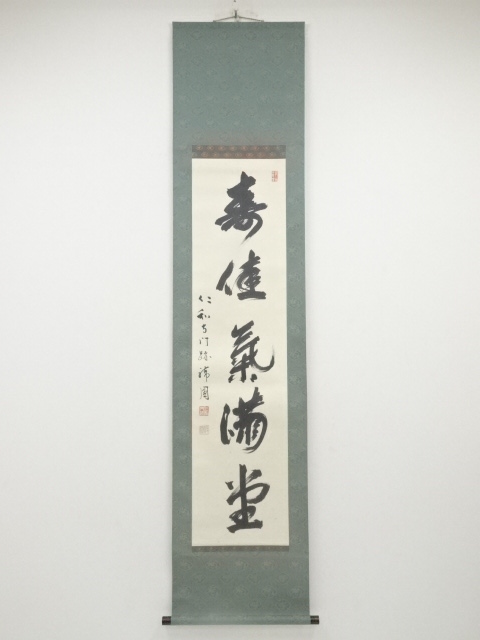 寿佳氣満堂
仁和寺門跡